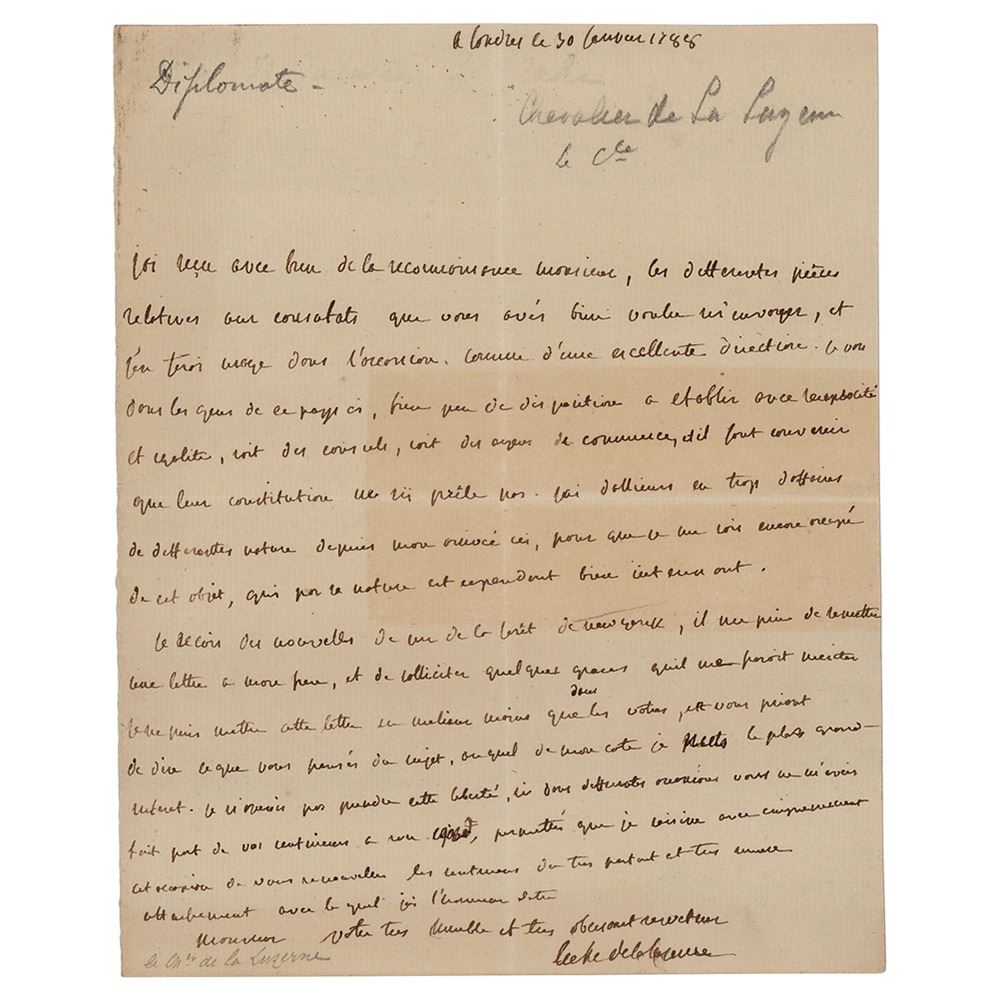 a Londres le 30 Janvier 1788
Diplomate -
Chevalier de La Luzerne
le Cte
j'ai reçu avec bien de la reconnoissance monsieur, les differentes pièces
relatives aux consulats que vous avés bien voulu m'envoyer, et
j'en ferai usage dans l'occasion. comme d'une excellente direction. je vois
dans les gens de ce pays ci, bien peu de disposition a etablir avec reciprocité
et egalité, soit des consuls, soit des agens de commerce, et il faut convenir
que leur constitution ne s'y prête pas. j'ai d'ailleurs eu trop d'affaires
de differentes nature depuis mon arrivée ici, pour que je me sois encore occupé
de cet objet, qui par sa nature est cependant bien interessant.
Je recois des nouvelles de mr de la forêt de newyorck, il me prie de remettre
une lettre a mon frere, et de solliciter quelques graces qu'il me paroit meriter
je ne puis mettre cette lettre en meilleur mains que dans les votres, et vous priant
de dire ce que vous pensés du sujet, auquel de mon coté je mets le plus grand
interet. je n'aurois pas prendre cette liberté, si dans differentes occasions vous ne m'aviés
fait part de vos sentimens a son egard, permettés que je saisisse avec empressement
cet occasion de vous renouveller les sentimens du tres parfait et tres sincere
attachement avec lequel j'ai l'honneur d'etre
Monsieur votre tres humble et tres obeissant serviteur
le che de la luzerne
le Chr de la Luzerne